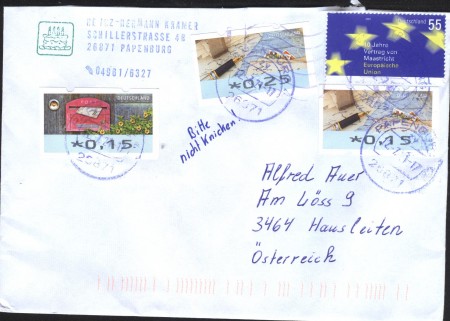 HEINZ-HERMANN KRAMER
SCHILLERSTRASSE 48
26871 PAPENBURG
04961/6327
Deutschland 55
10 Jahre
Vertrag von
Maastricht
Europäische
Union
*0,25
26871
DEUTSCHLAND
POST
*0,15
26871
*0,15
26871
Bitte
nicht Knicken!
Alfred Auer
Am Löss 9
3464 Hausleiten
Österreich